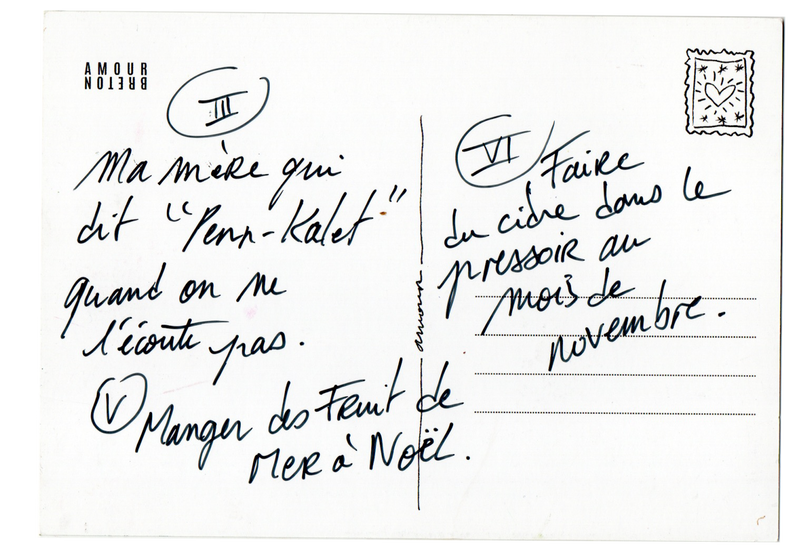 AMOUR
BRETON
III
Ma mère qui
dit "Penn-Kalet"
quand on ne
l'écoute pas.
V Manger des Fruit de
Mer à Noël.
amour
VI Faire
du cidre dans le
pressoir au
mois de
novembre.